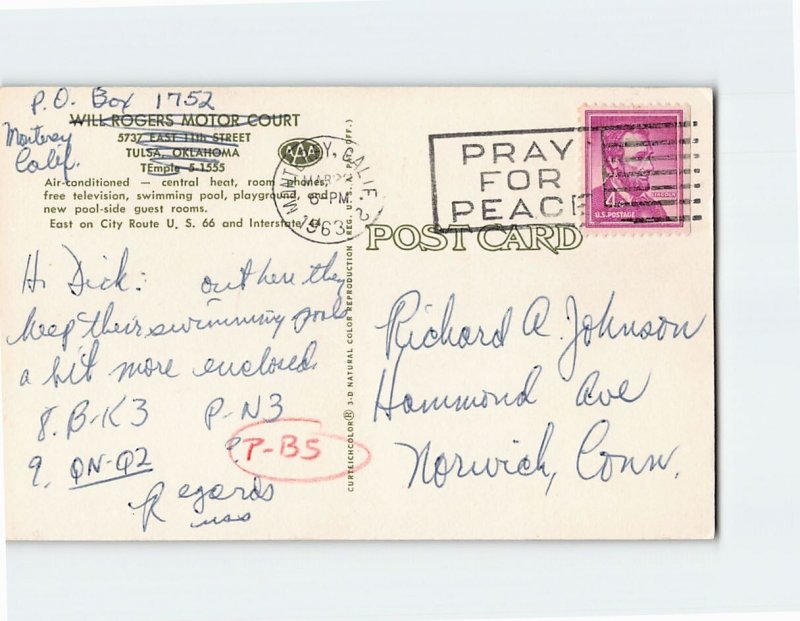 P.O. Box 1752
Monterey
Calif.
WILL ROGERS MOTOR COURT
5737 EAST 11th STREET
TULSA, OKLAHOMA
TEmple 5-1555
AAA
Air-conditioned — central heat, room phones,
free television, swimming pool, playground, and
new pool-side guest rooms.
East on City Route U. S. 66 and Interstate
MONTEREY, CALIF. 2
MAR
6 PM
1963
PRAY
FOR
PEACE
4¢
LINCOLN
U.S. POSTAGE
POST CARD
Hi Dick: out here they
keep their swimming pools
a bit more enclosed.
8. B-K3 P-N3
9. QN-Q2 P-B5
Regards
CURTEICHCOLOR® 3-D NATURAL COLOR REPRODUCTION (REG. U.S. PAT. OFF.)
Richard A. Johnson
Hammond Ave
Norwich, Conn.